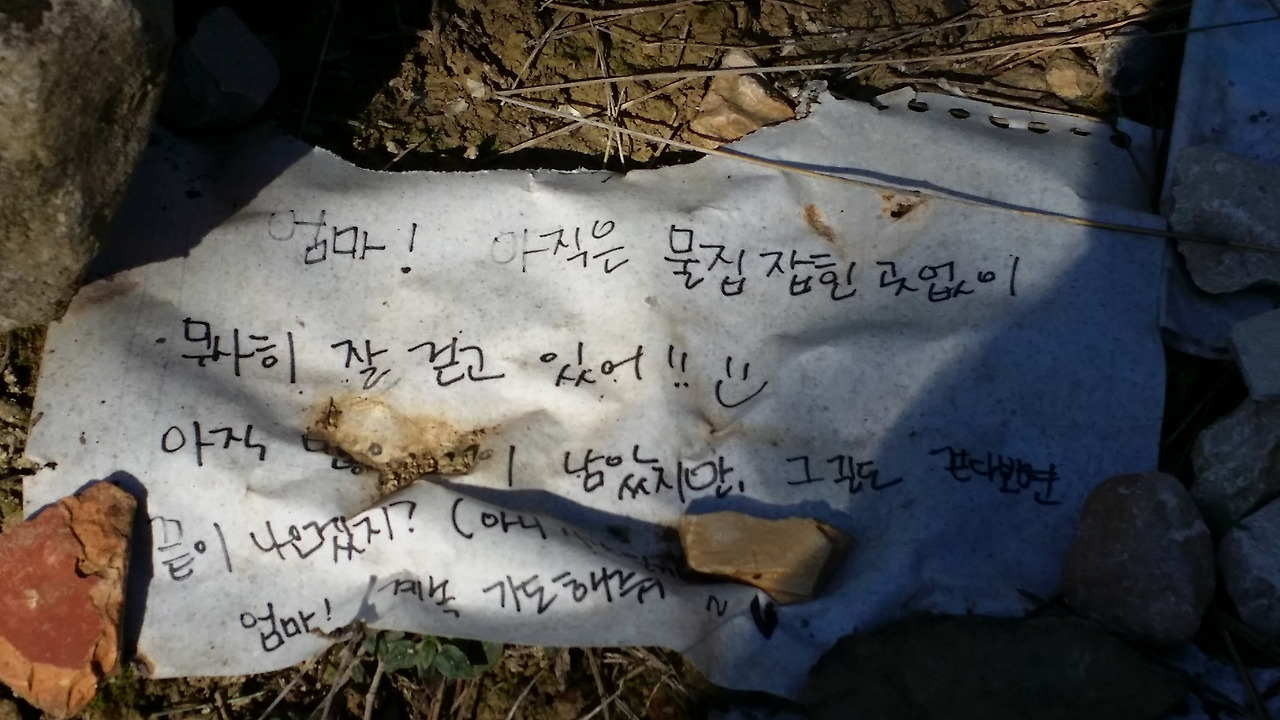 엄마! 아직은 물집 잡힌 곳없이
무사히 잘 걷고 있어!!
아직 남았지만, 그 길도 걷다보면
끝이 나오겠지? (아니
엄마! 계속 기도해줘 ~